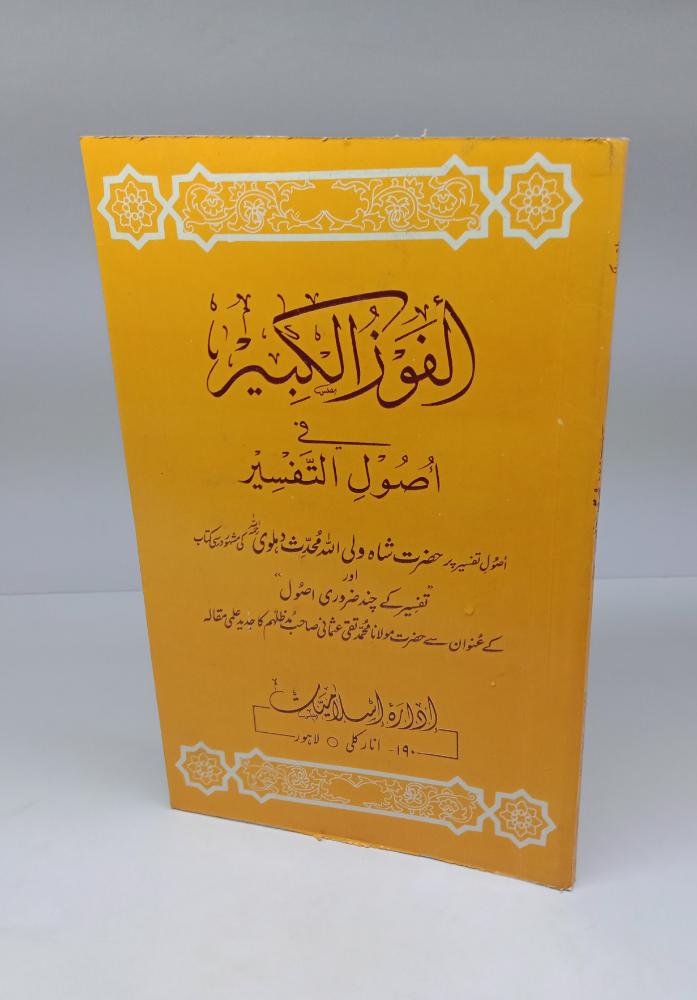 ألفَوْزُ الْكَبِيْر
فِي
أُصُوْلِ التَّفْسِيْر
اُصُولِ تفسیر پر حضرت شاہ ولی اللہ مُحدِّث دہلوی رحمہ اللہ کی مشہور درسی کتاب
اور
”تفسیر کے چند ضروری اصول“
کے عُنوان سے حضرت مولانا محمد تقی عثمانی صاحب مدظلہم کا جدید علمی مقالہ
إدارۂ إسلامیات
۱۹۰- انار کلی ○ لاہور